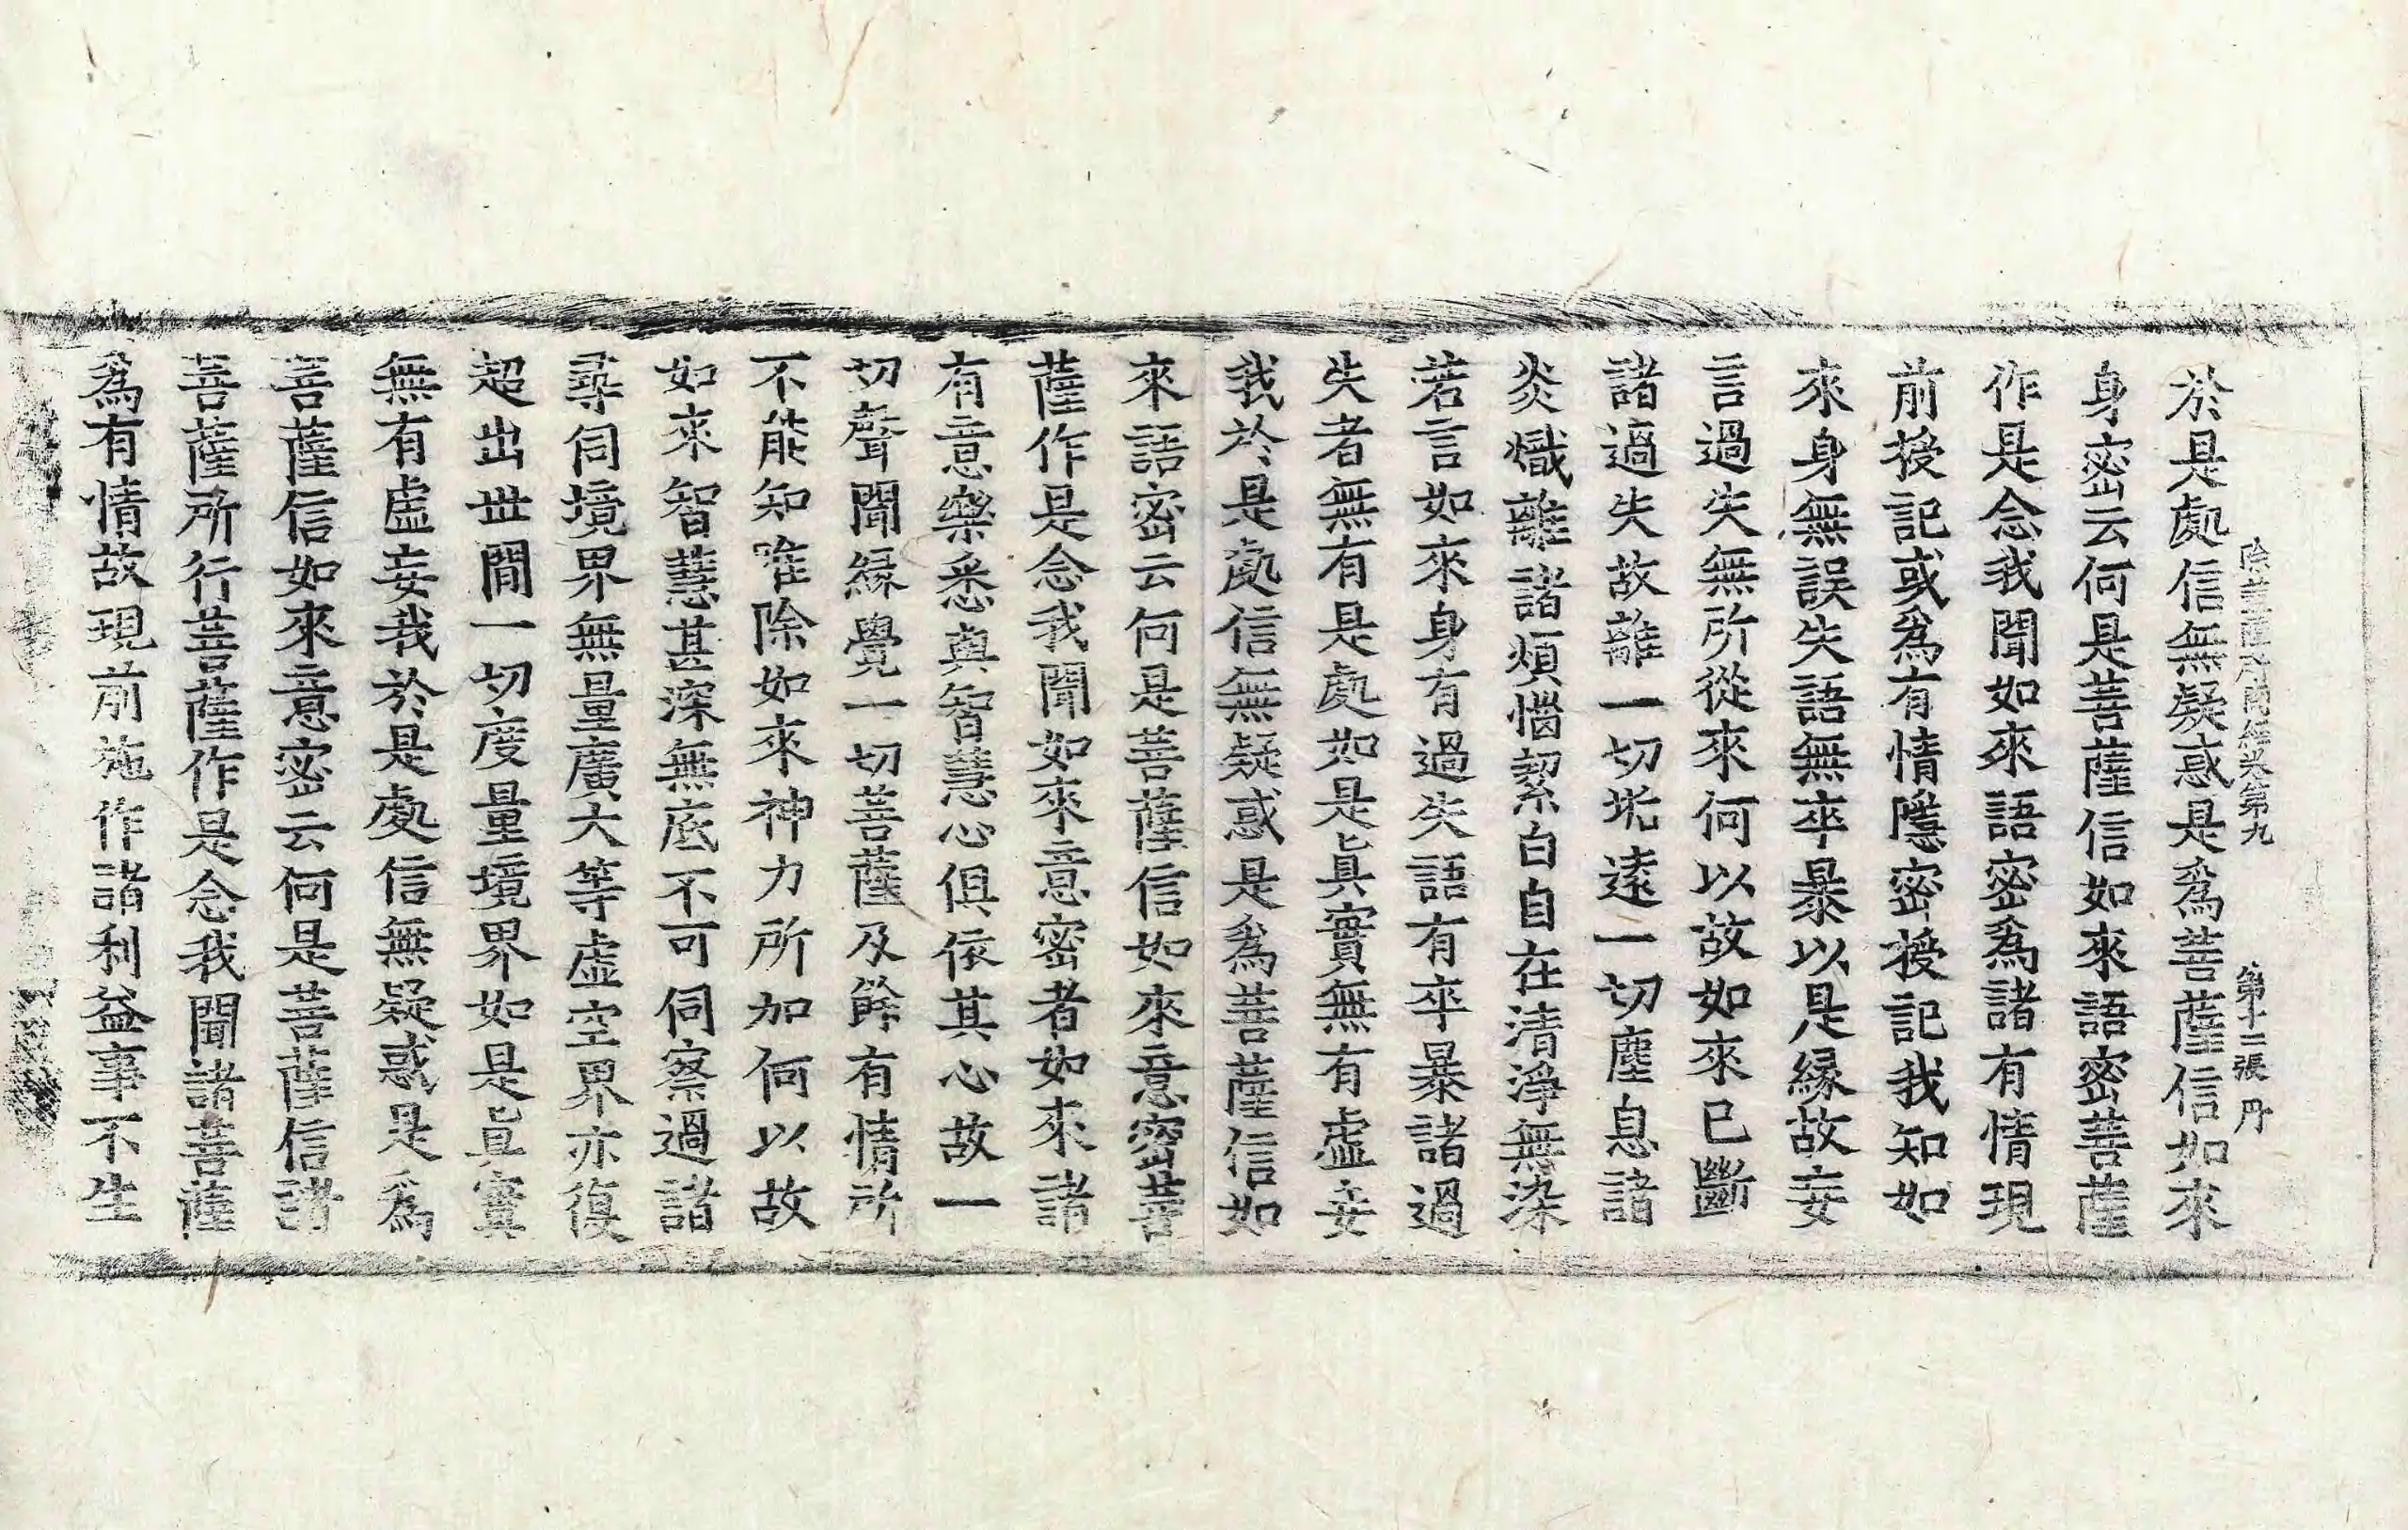 除蓋障菩薩所問經卷第九 第十二張 丹
於是處信無疑惑是爲菩薩信如來
身密云何是菩薩信如來語密菩薩
作是念我聞如來語密爲諸有情現
前授記或爲有情隱密授記我知如
來身無誤失語無卒暴以是緣故妄
言過失無所從來何以故如來已斷
諸過失故離一切垢遠一切塵息諸
炎熾離諸煩惱絜白自在清淨無染
若言如來身有過失語有卒暴諸過
失者無有是處如是眞實無有虛妄
我於是處信無疑惑是爲菩薩信如
來語密云何是菩薩信如來意密菩
薩作是念我聞如來意密者如來諸
有意樂悉與智慧心俱依其心故一
切聲聞緣覺一切菩薩及餘有情所
不能知唯除如來神力所加何以故
如來智慧甚深無底不可伺察過諸
尋伺境界無量廣大等虛空界亦復
超出世閒一切度量境界如是眞實
無有虛妄我於是處信無疑惑是爲
菩薩信如來意密云何是菩薩信諸
菩薩所行菩薩作是念我聞諸菩薩
爲有情故現前施作諸利益事不生